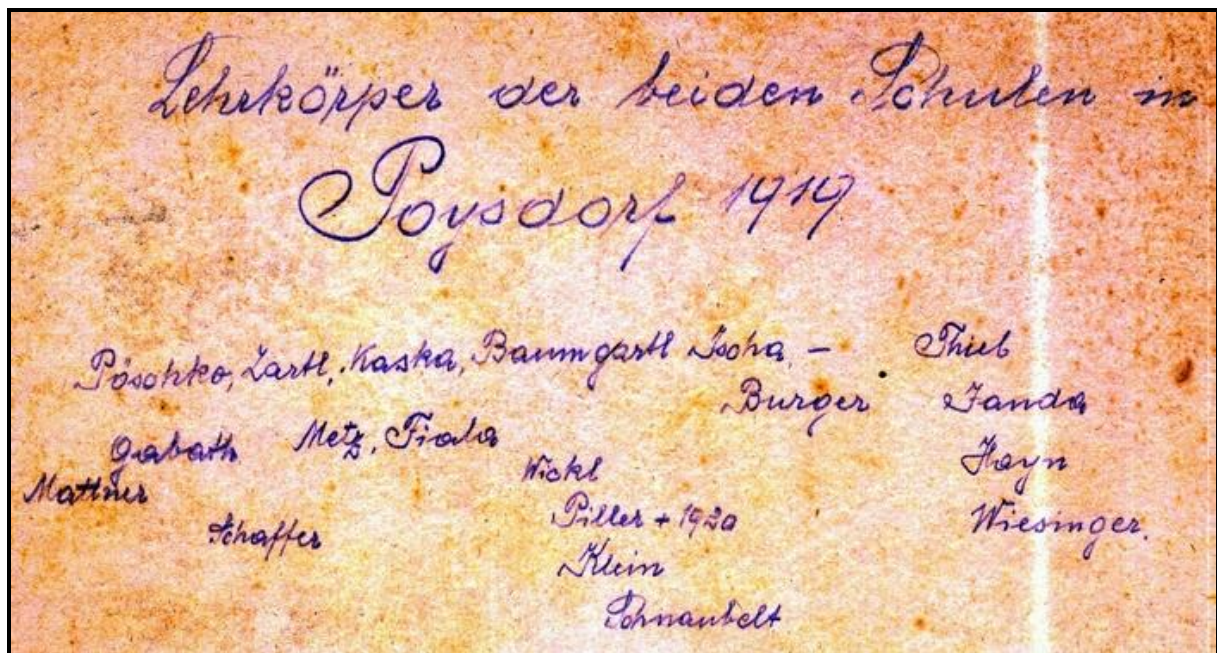 Lehrkörper der beiden Schulen in
Poysdorf 1919
Pöschko, Zartl, Kaska, Baumgartl Ischa, - Thiel
Burger Janda
Gabath Metz, Fiala
Wickl Hayn
Mattner
Piller + 1920 Wiesinger.
Schaffer
Klein
Schnaubelt